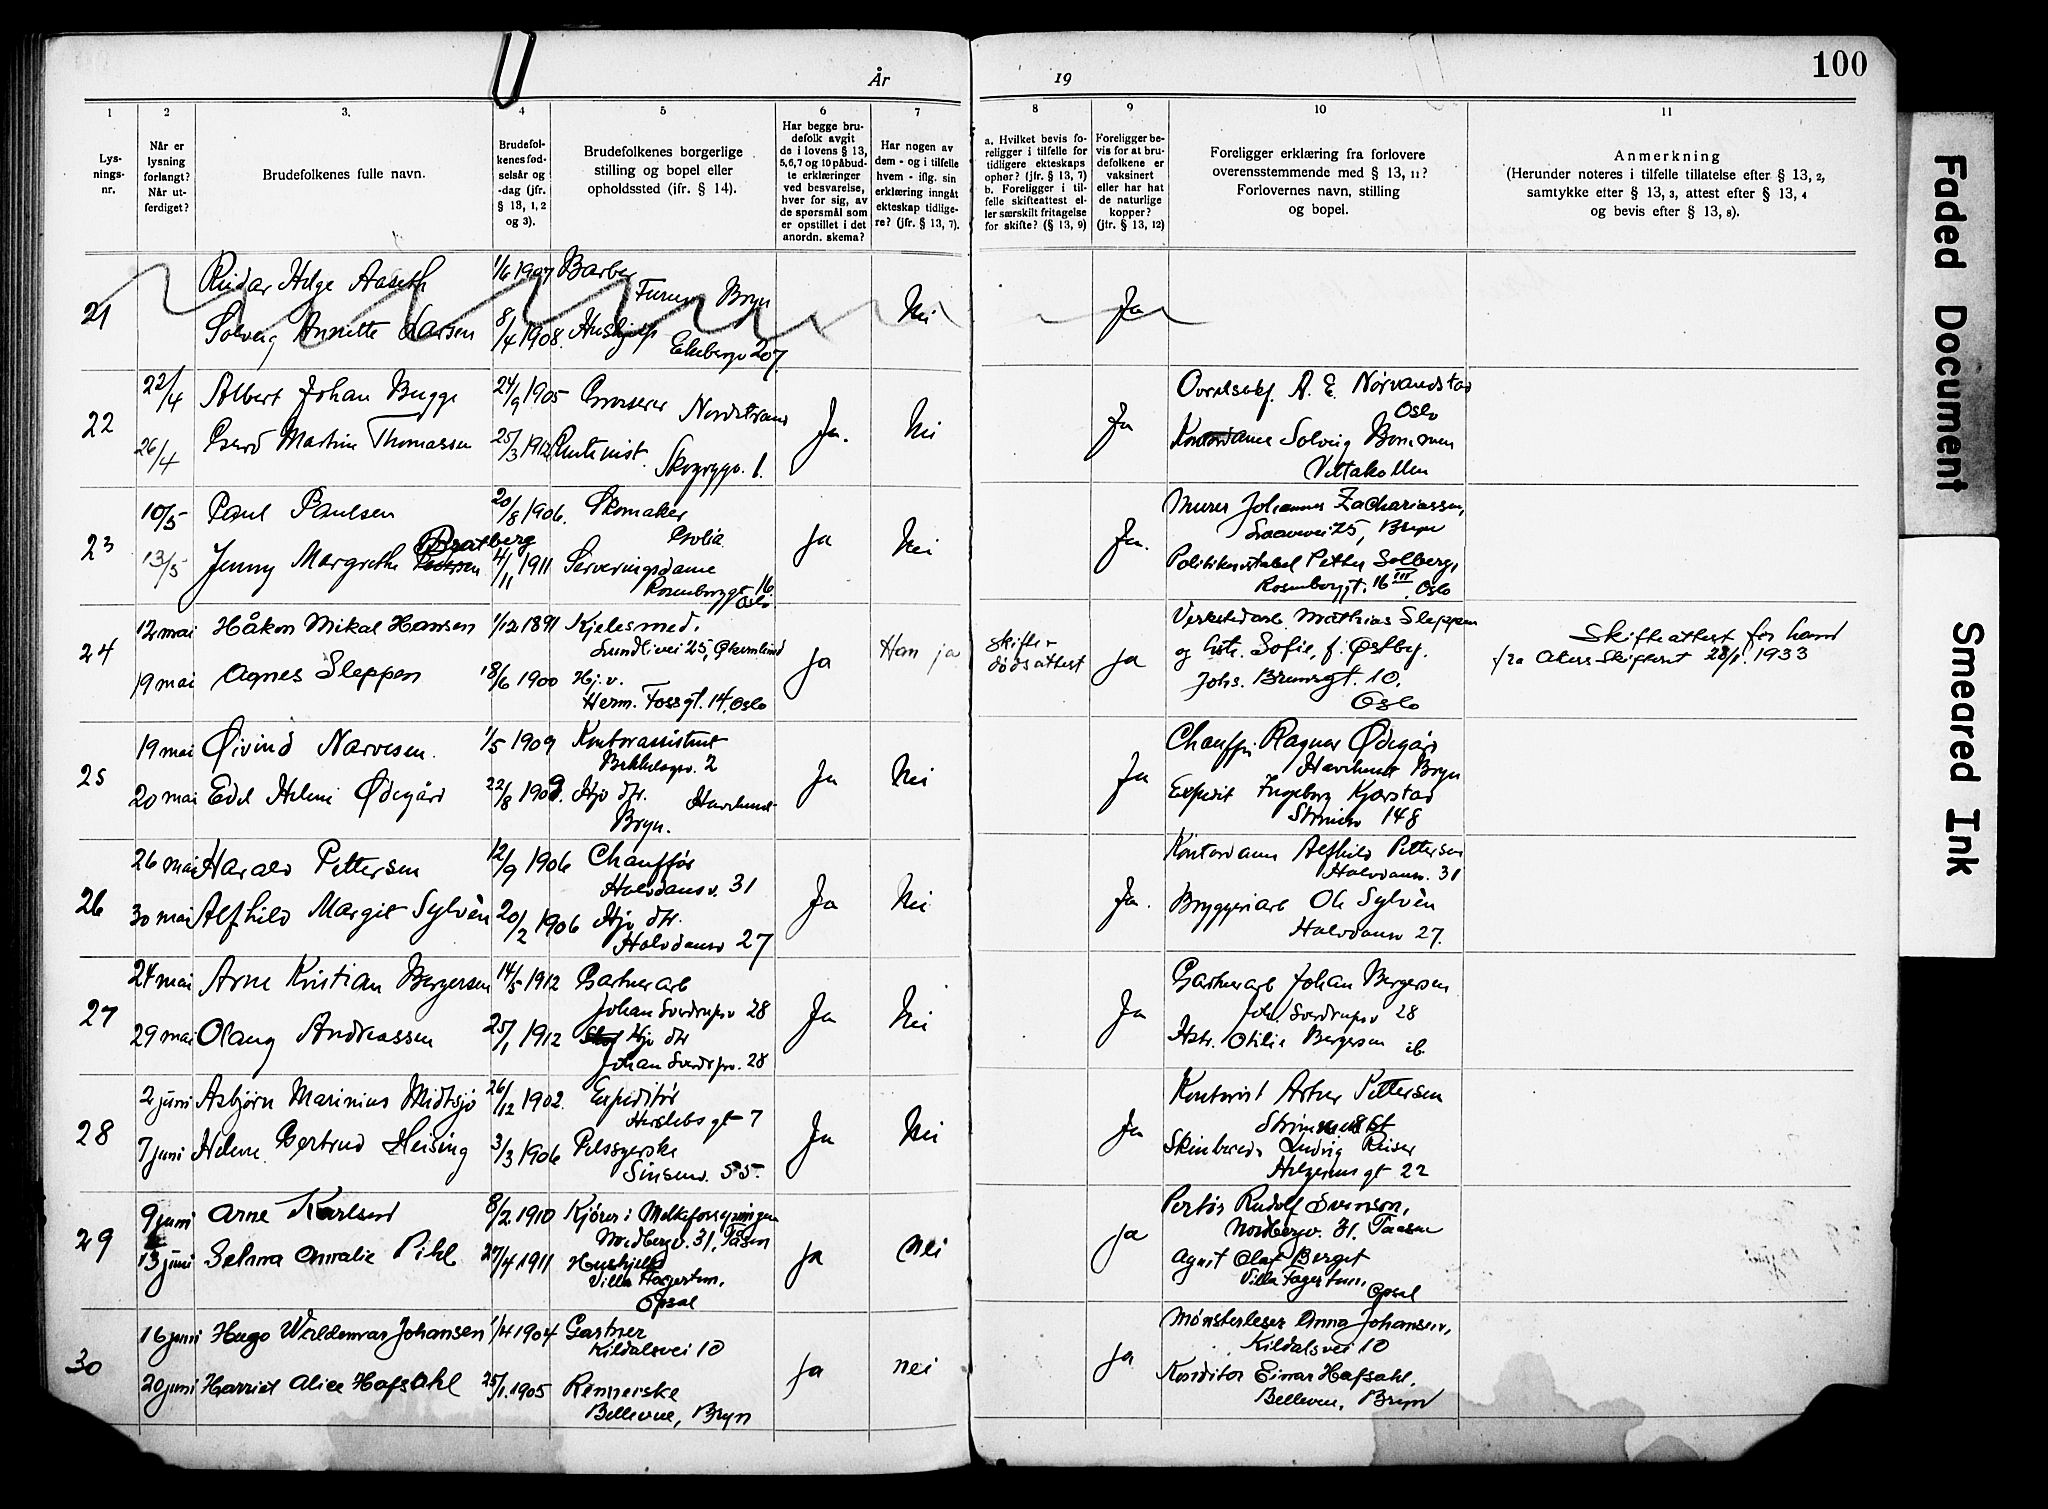 100
År
19
1
2
3.
4
5
6
7
8
9
10
11
Lys-
nings-
nr.
Når er
lysning
forlangt?
Når ut-
ferdiget?
Brudefolkenes fulle navn.
Brudefol-
kenes fød-
selsår og
-dag (jfr.
§ 13, 1, 2
og 3).
Brudefolkenes borgerlige
stilling og bopel eller
opholdssted (jfr. § 14).
Har begge bru-
defolk avgit
de i lovens § 13,
5,6,7 og 10 påbud-
te erklæringer
ved besvarelse,
hver for sig, av
de spørsmål som
er opstillet i det
anordn. skema?
Har nogen av
dem - og i tilfelle
hvem - iflg. sin
erklæring inngått
ekteskap tidlige-
re? (jfr. § 13, 7).
a. Hvilket bevis fo-
religger i tilfelle for
tidligere ekteskaps
ophør? (jfr. § 13, 7)
b. Foreligger i til-
felle skifteattest el-
ler særskilt fritagelse
for skifte? (§ 13, 9)
Foreligger be-
vis for at bru-
defolkene er
vaksinert
eller har hat
de naturlige
kopper?
(jfr. § 13, 12)
Foreligger erklæring fra forlovere
overensstemmende med § 13, 11?
Forlovernes navn, stilling
og bopel.
Anmerkning
(Herunder noteres i tilfelle tillatelse efter § 13, 2,
samtykke efter § 13, 3, attest efter § 13, 4
og bevis efter § 13, 8).
21
Reidar Helge Aaseth
1/6 1907
Barber
Furum Bryn
Solveig Annette Larsen
8/4 1908.
Hushjelp
Ekebergv 207.
Nei
Ja
22
22/4
Albert Johan Bugge
24/9 1905
Grosserer
Nordstrand
26/4
Gerd Martine Thomassen
25/3 1912
Skogryggv. 1.
Ja.
Nei
Ja
A. E. Nørvandstad
Oslo
Kontordame Solveig Bommen
Vettakollen
23
10/5
Paul Paulsen
20/8 1906.
Skomaker
13/5
Jenny Margrethe Bratberg
4/11 1911
Serveringsdame
Rosenborggt 16.
Oslo
Ja
Nei
Ja.
Murer Johannes Zachariassen,
25, Bryn
Politikonstabel Petter Solberg,
Rosenborggt. 16 III Oslo
24
12 mai
Håkon Mikal Hansen
1/12 1891
Kjelesmed.
Lundlivei 25,
19 mai
Agnes Sleppen
18/6 1900
Hj. v.
Herm. Fossgt. 14, Oslo
Ja
Han ja
Skifte-
dødsattest
Ja
Verkstedarb. Mathias Sleppen
og hstr. Sofie, f. Østby.
Johs. Brunsgt. 10.
Oslo
Skifteattest for ham
fra Akers Skifterett 28/1. 1933
25
19 mai
Øivind Narvesen.
1/5 1909
Kontorassistent
Bekkelagsv. 2
20 mai
Edel Helene Ødegård
22/8 1909.
Hjv dtr.
Havrelund
Bryn.
Ja
Nei
Ja
Chauffør Ragnar Ødegård
Havrelund Bryn
Expedit Ingeborg Kjørstad
148
26
26 mai
Harald Pettersen
12/9 1906
Chauffør
Halvdansv. 31
30 mai
Alfhild Margit Sylvèn
20/2 1906
Hjv. dtr.
Halvdansv 27
Ja
Nei
Ja.
Kontordame Alfhild Pettersen
Halvdansv. 31
Bryggeriarb Ole Sylvèn
Halvdansv 27.
27
24 mai
Arne Kristian Bergersen
14/5 1912
Gartnerarb
Johan Sverdrupsv 28
29 mai
Olaug Andreassen
25/1 1912
Hjv dtr
Johan Sverdrpv. 28
Ja
Nei
Ja
Gartnerarb Johan Bergersen
Joh. Sverdrupsv 28
Hstr. Otilie Bergersen ib.
28
2 juni
Asbjørn Marinius Midtsjø
26/12 1902.
Expeditør
Herslebs gt 7
7 juni
Helene Gertrud Heising
3/3 1906
Pelssyerske
Sinsenv. 55.
Ja
Nei
Ja
Kontorist Arthur Pettersen
Skinnbered. Ludvig Reiser
Helgesens gt 22
29
9 juni
Arne Karlsen
8/2 1910
Kjører i Melkeforsyningen
Nordbergv. 31, Tåsen
13 juni
Selma Amalie Pihl
27/4 1911
Hushjelp
Villa Fagertun,
Opsal
Ja
nei
Ja
Portør Rudolf Svenson,
Nordbergv. 31, Taasen
Agent Olaf Berget
Villa Fagertun,
Opsal
30
16 juni
Hugo Waldemar Johansen
1/4 1904
Gartner
Kildalsvei 10
20 juni
Harriet Alice Hafsahl
25/1. 1905
Rennerske
Bellevue, Bryn
Ja
nei
Ja
Mønsterleser Anna Johansen,
Kildalsvei 10
Konditor Einar Hafsahl,
Bellevue, Bryn
Faded Document
Smeared Ink